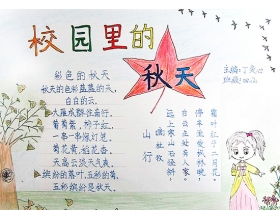 校园里的
秋天
主编:丁
班级:四
彩色的秋天
秋天的色彩是蓝蓝的天,
白白的云,
大雁成群往南行。
葡萄紫,柿子红,
一串一串
菊花黄,稻花香,
天高云淡天气爽,
缤纷的落叶,五彩的菊,
五彩缤纷是秋天。
山行
远上寒山石径斜,
白云生处有人家。
停车坐爱枫林晚,
霜叶红于二月花。